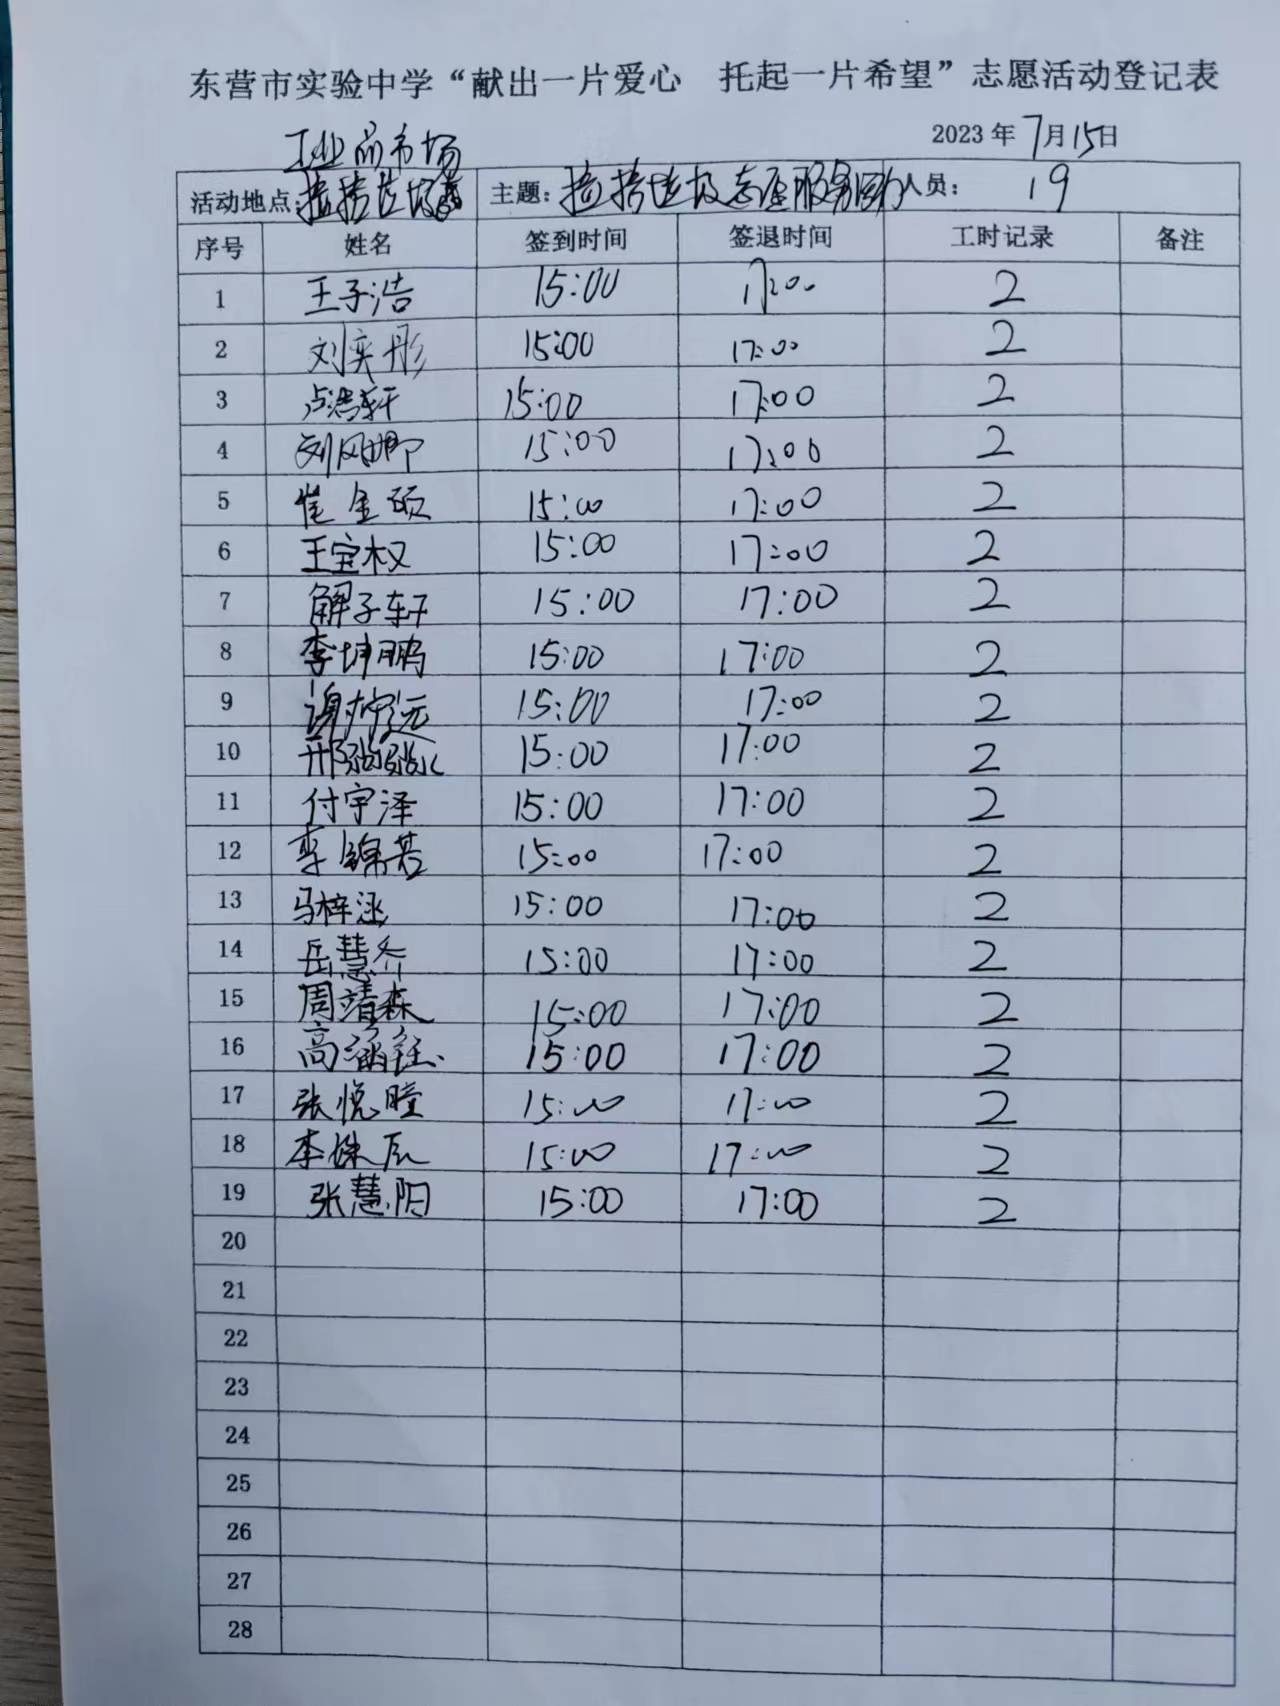 东营市实验中学“献出一片爱心 托起一片希望”志愿活动登记表
2023年7月15日
工业品市场
活动地点: 主题: 捡拾垃圾志愿服务活动 人员: 19
序号 姓名 签到时间 签退时间 工时记录 备注
1 王子浩 15:00 17:00 2
2 刘奕彤 15:00 17:00 2
3 卢浩轩 15:00 17:00 2
4 15:00 17:00 2
5 崔金硕 15:00 17:00 2
6 王宝权 15:00 17:00 2
7 解子轩 15:00 17:00 2
8 李坤鹏 15:00 17:00 2
9 15:00 17:00 2
10 15:00 17:00 2
11 付宇泽 15:00 17:00 2
12 李锦若 15:00 17:00 2
13 马梓涵 15:00 17:00 2
14 岳慧乔 15:00 17:00 2
15 周靖森 15:00 17:00 2
16 高涵钰 15:00 17:00 2
17 张悦瞳 15:00 17:00 2
18 李姝辰 15:00 17:00 2
19 张慧阳 15:00 17:00 2
20
21
22
23
24
25
26
27
28